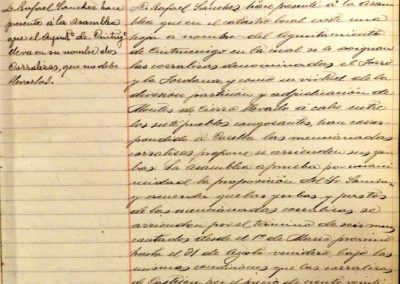 D. Rafael Sanchez hace
presente á la Asamblea
que el Ayunt.º de Cintrig.º
lleva en su nombre dos
Corralizas, que no debe
llevarlas.
D. Rafael Sanchez hace presente á la Asam-
blea que en el catastro local existe una
hoja á nombre del Ayuntamiento
de Cintruenigo en la cual se le asignan
las corralizas denominadas el Sorro
y la Jordana, y como en virtud de la
division particion y adjudicacion de
Montes de Cierzo llevado á cabo entre
los siete pueblos congozantes han corres-
pondido á Corella las mencionadas
corralizas propone se arrienden sus yer-
bas. La Asamblea aprueba por unani-
midad la proposicion del Sr. Sanchez
y acuerda que las yerbas y pastos
de las mencionadas corralizas se
arriendan por el término de seis meses
contados desde el 1º de Marzo proximo
hasta el 31 de Agosto venidero, bajo las
mismas condiciones que las corralizas
de por el precio de ciento veinti